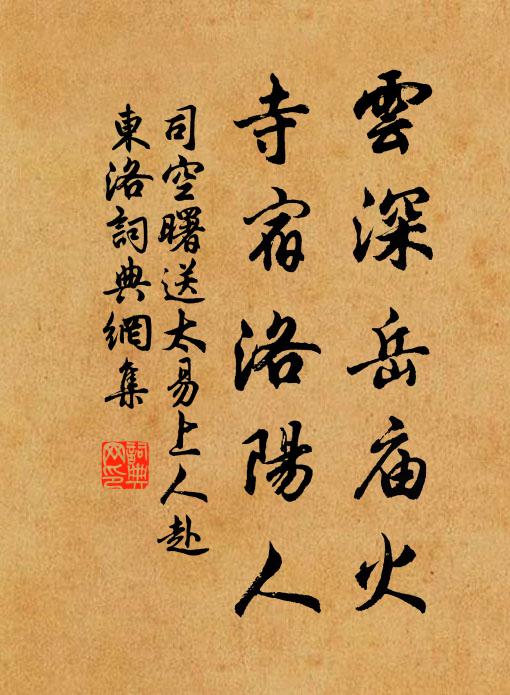 雲深岳庙火
寺宿洛陽人
司空曙送太易上人赴
東洛詞典網集
詞典
网印